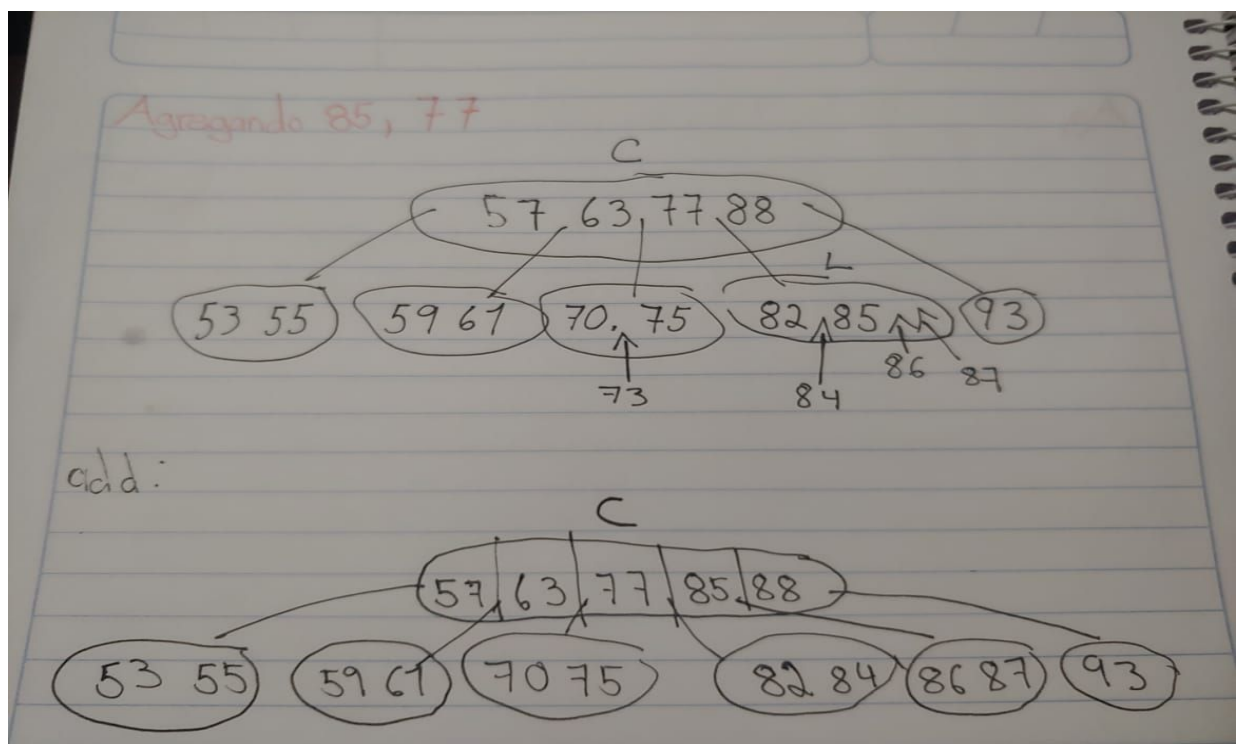 Agregando 85, 77
C
57 63, 77 88
L
53 55 59 61 70. 75 82 85 93
73 84 86 87
add:
C
57 63 77 85 88
53 55 59 61 70 75 82 84 86 87 93